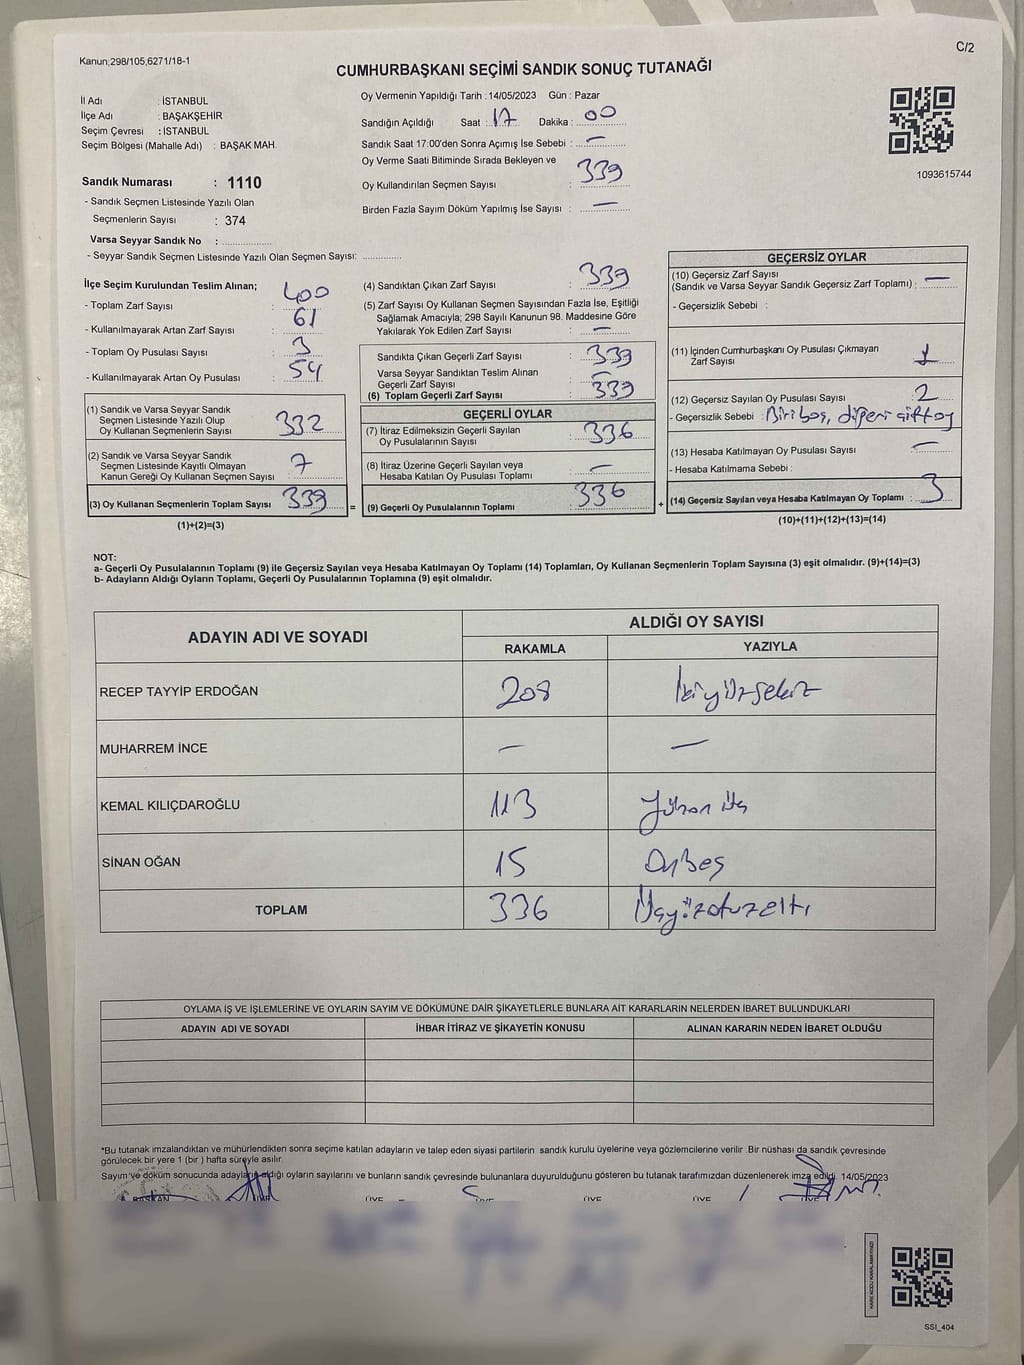 Kanun;298/105,6271/18-1
C/2
CUMHURBAŞKANI SEÇİMİ SANDIK SONUÇ TUTANAĞI
İl Adı : İSTANBUL
İlçe Adı : BAŞAKŞEHİR
Seçim Çevresi : İSTANBUL
Seçim Bölgesi (Mahalle Adı) : BAŞAK MAH.
Sandık Numarası : 1110
- Sandık Seçmen Listesinde Yazılı Olan
Seçmenlerin Sayısı : 374
Varsa Seyyar Sandık No : ................
- Seyyar Sandık Seçmen Listesinde Yazılı Olan Seçmen Sayısı: ............
Oy Vermenin Yapıldığı Tarih : 14/05/2023 Gün : Pazar
Sandığın Açıldığı Saat : 17 Dakika : 00
Sandık Saat 17:00'den Sonra Açımış İse Sebebi : —
Oy Verme Saati Bitiminde Sırada Bekleyen ve
Oy Kullandırılan Seçmen Sayısı : 339
Birden Fazla Sayım Döküm Yapılmış İse Sayısı : —
1093615744
İlçe Seçim Kurulundan Teslim Alınan;
- Toplam Zarf Sayısı : 400
- Kullanılmayarak Artan Zarf Sayısı : 61
- Toplam Oy Pusulası Sayısı : 3
- Kullanılmayarak Artan Oy Pusulası : 54
(1) Sandık ve Varsa Seyyar Sandık
Seçmen Listesinde Yazılı Olup
Oy Kullanan Seçmenlerin Sayısı : 332
(2) Sandık ve Varsa Seyyar Sandık
Seçmen Listesinde Kayıtlı Olmayan
Kanun Gereği Oy Kullanan Seçmen Sayısı : 7
(3) Oy Kullanan Seçmenlerin Toplam Sayısı : 339
(1)+(2)=(3)
=
(4) Sandıktan Çıkan Zarf Sayısı : 339
(5) Zarf Sayısı Oy Kullanan Seçmen Sayısından Fazla İse, Eşitliği
Sağlamak Amacıyla; 298 Sayılı Kanunun 98. Maddesine Göre
Yakılarak Yok Edilen Zarf Sayısı : —
Sandıkta Çıkan Geçerli Zarf Sayısı : 339
Varsa Seyyar Sandıktan Teslim Alınan
Geçerli Zarf Sayısı : —
(6) Toplam Geçerli Zarf Sayısı : 339
GEÇERLİ OYLAR
(7) İtiraz Edilmeksizin Geçerli Sayılan
Oy Pusulalarının Sayısı : 336
(8) İtiraz Üzerine Geçerli Sayılan veya
Hesaba Katılan Oy Pusulası Toplamı : —
(9) Geçerli Oy Pusulalarının Toplamı : 336
+
GEÇERSİZ OYLAR
(10) Geçersiz Zarf Sayısı
(Sandık ve Varsa Seyyar Sandık Geçersiz Zarf Toplamı) : —
- Geçersizlik Sebebi :
(11) İçinden Cumhurbaşkanı Oy Pusulası Çıkmayan
Zarf Sayısı : 1
(12) Geçersiz Sayılan Oy Pusulası Sayısı : 2
- Geçersizlik Sebebi : Biri boş, diğeri çift oy
(13) Hesaba Katılmayan Oy Pusulası Sayısı : —
- Hesaba Katılmama Sebebi :
(14) Geçersiz Sayılan veya Hesaba Katılmayan Oy Toplamı : 3
(10)+(11)+(12)+(13)=(14)
NOT:
a- Geçerli Oy Pusulalarının Toplamı (9) ile Geçersiz Sayılan veya Hesaba Katılmayan Oy Toplamı (14) Toplamları, Oy Kullanan Seçmenlerin Toplam Sayısına (3) eşit olmalıdır. (9)+(14)=(3)
b- Adayların Aldığı Oyların Toplamı, Geçerli Oy Pusulalarının Toplamına (9) eşit olmalıdır.
ADAYIN ADI VE SOYADI ALDIĞI OY SAYISI
RAKAMLA YAZIYLA
RECEP TAYYİP ERDOĞAN 208 İkiyüzsekiz
MUHARREM İNCE — —
KEMAL KILIÇDAROĞLU 113 Yüzon üç
SİNAN OĞAN 15 Onbeş
TOPLAM 336 Üçyüzotuzaltı
OYLAMA İŞ VE İŞLEMLERİNE VE OYLARIN SAYIM VE DÖKÜMÜNE DAİR ŞİKAYETLERLE BUNLARA AİT KARARLARIN NELERDEN İBARET BULUNDUKLARI
ADAYIN ADI VE SOYADI İHBAR İTİRAZ VE ŞİKAYETİN KONUSU ALINAN KARARIN NEDEN İBARET OLDUĞU
*Bu tutanak imzalandıktan ve mühürlendikten sonra seçime katılan adayların ve talep eden siyasi partilerin sandık kurulu üyelerine veya gözlemcilerine verilir .Bir nüshası da sandık çevresinde
görülecek bir yere 1 (bir ) hafta süreyle asılır.
Sayım ve döküm sonucunda adayların aldığı oyların sayılarını ve bunların sandık çevresinde bulunanlara duyurulduğunu gösteren bu tutanak tarafımızdan düzenlenerek imza edildi. 14/05/2023
BAŞKAN ÜYE ÜYE ÜYE ÜYE ÜYE
SSI_404